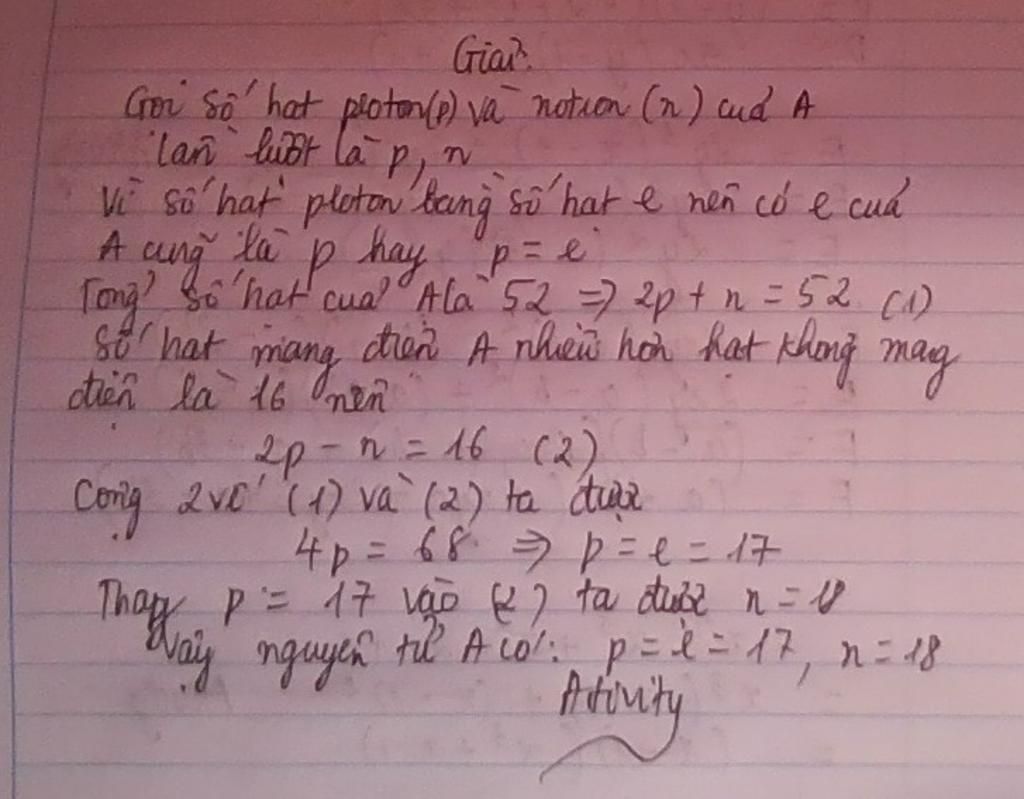 Giải
Gọi số hạt proton(p) và notron (n) của A
lần lượt là p, n
Vì số hạt proton bằng số hạt e nên có e của
A cũng là p hay p = e
Tổng số hạt của A là 52 => 2p + n = 52 (1)
Số hạt mang điện A nhiều hơn hạt không mang
điện là 16 nên
2p - n = 16 (2)
Cộng 2 vế (1) và (2) ta được
4p = 68 => p = e = 17
Thay p = 17 vào (2) ta được n = 18
Vậy nguyên tử A có: p = e = 17, n = 18